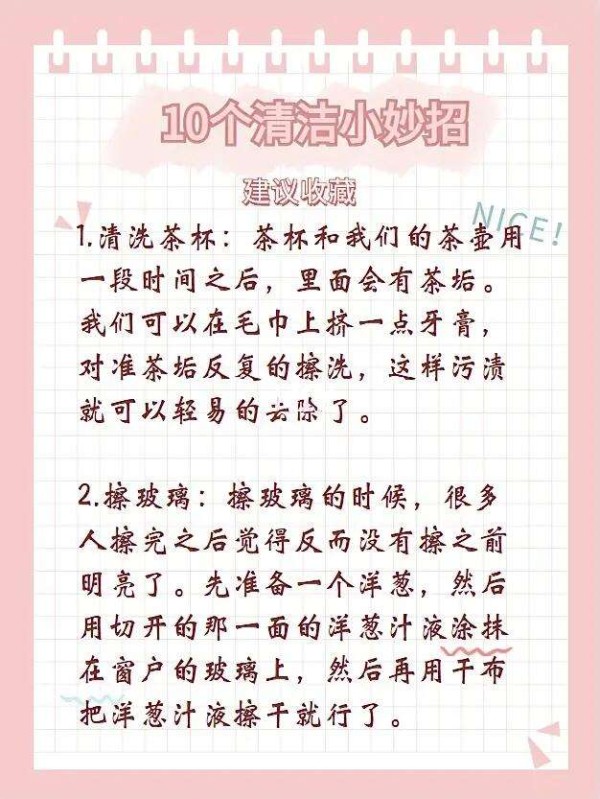 10个清洁小妙招
建议收藏
NICE!
1.清洗茶杯：茶杯和我们的茶壶用
一段时间之后，里面会有茶垢。
我们可以在毛巾上挤一点牙膏，
对准茶垢反复的擦洗，这样污渍
就可以轻易的去除了。
2.擦玻璃：擦玻璃的时候，很多
人擦完之后觉得反而没有擦之前
明亮了。先准备一个洋葱，然后
用切开的那一面的洋葱汁液涂抹
在窗户的玻璃上，然后再用干布
把洋葱汁液擦干就行了。